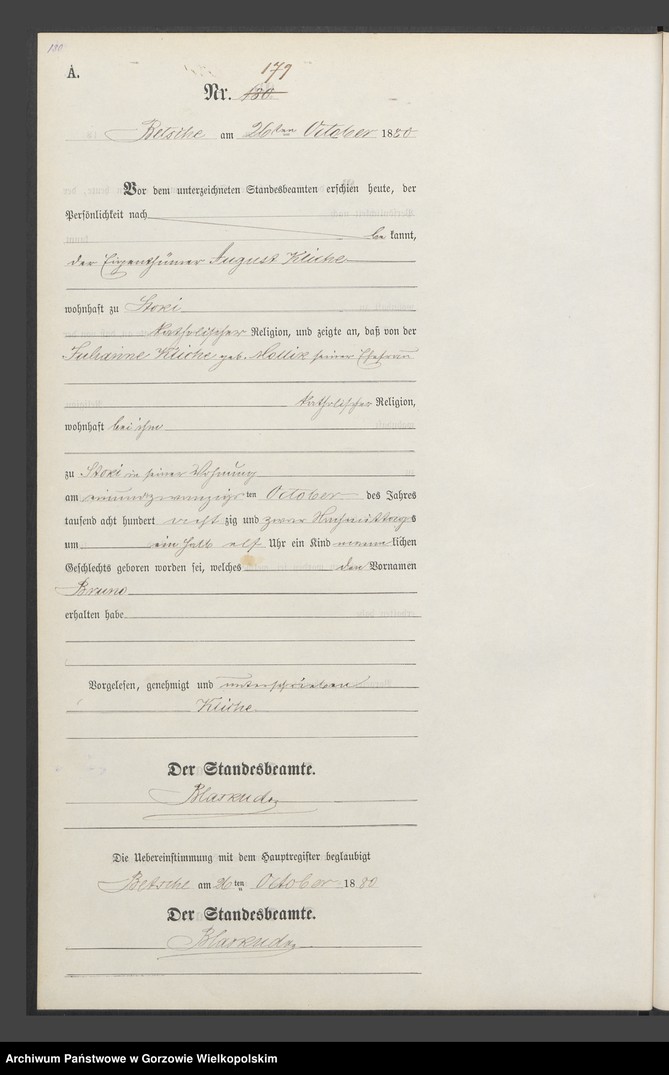 180
A.
179
Nr. 180.
Betsche am 26ten October 1880
Vor dem unterzeichneten Standesbeamten erschien heute, der
Persönlichkeit nach
be kannt,
der Eigenthümer August Kliche
wohnhaft zu Stoki
katholischer Religion, und zeigte an, daß von der
Juhanne Kliche geb. Mollik seiner Ehefrau
katholischer Religion,
wohnhaft bei ihm
zu Stoki in seiner Wohnung
am einundzwanzigsten October des Jahres
tausend acht hundert acht zig und zwar Nachmittags
um ein halb elf Uhr ein Kind männ lichen
Geschlechts geboren worden sei, welches den Vornamen
Bruno
erhalten habe
Vorgelesen, genehmigt und unterschrieben
Kliche
Der Standesbeamte.
Die Uebereinstimmung mit dem Hauptregister beglaubigt
Betsche am 26ten October 1880
Der Standesbeamte.
Archiwum Państwowe w Gorzowie Wielkopolskim